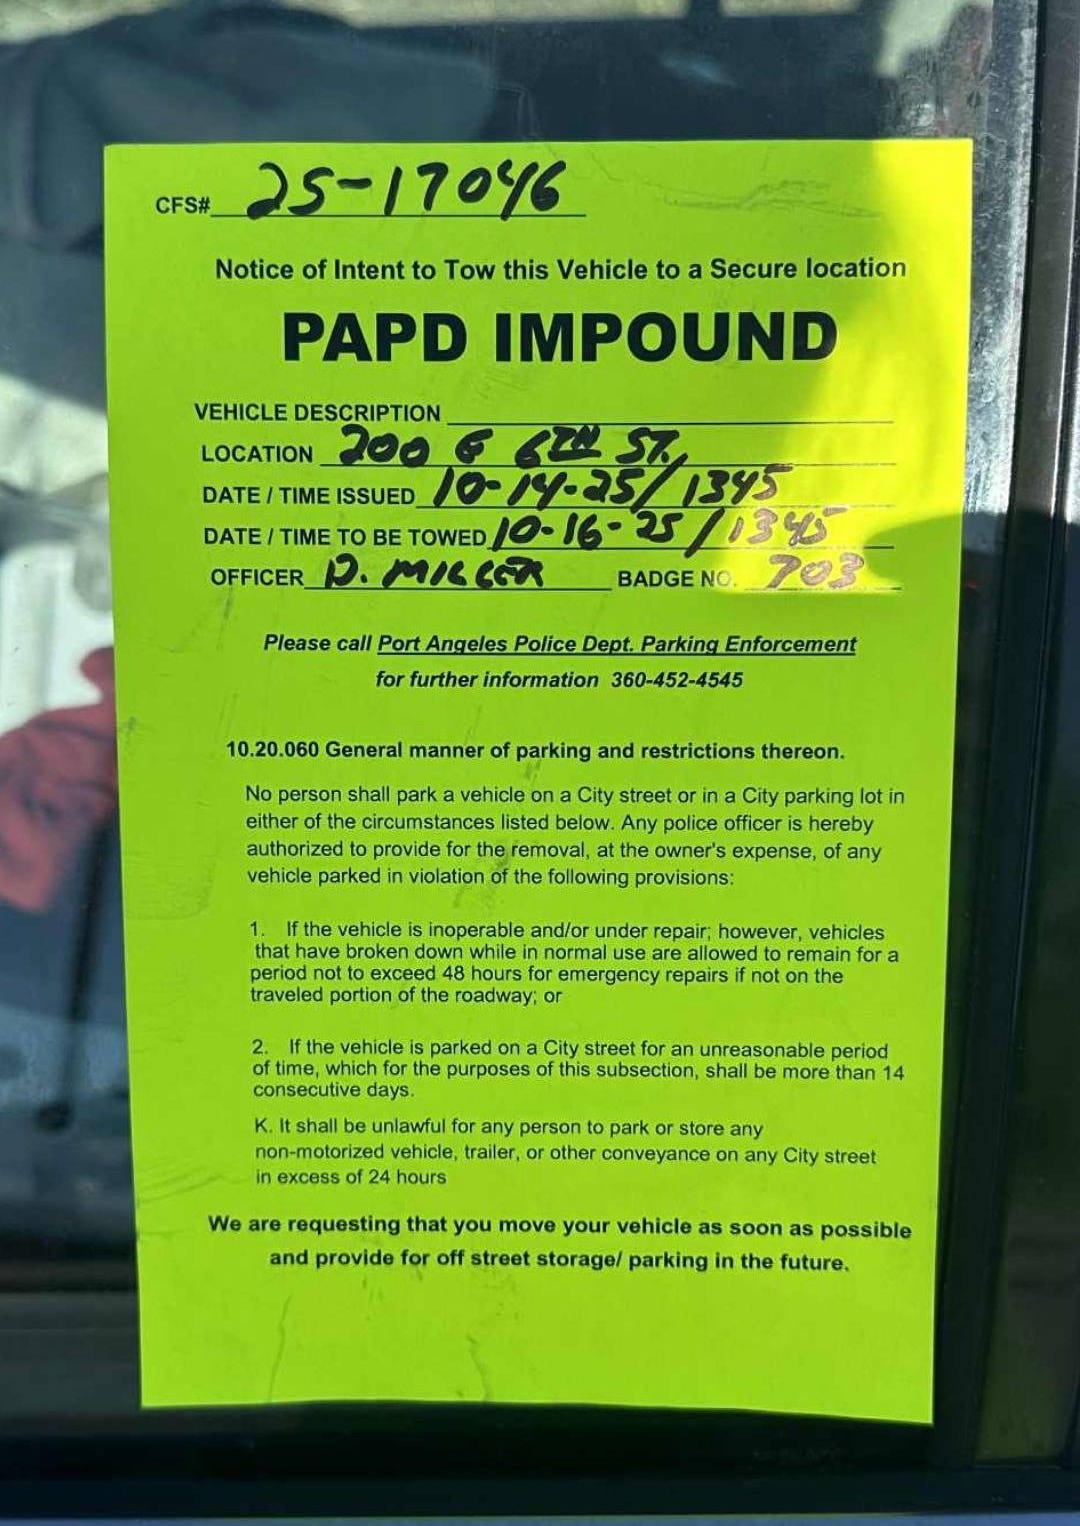 CFS# 25-17046
Notice of Intent to Tow this Vehicle to a Secure location
PAPD IMPOUND
VEHICLE DESCRIPTION
LOCATION 200 E 6TH ST.
DATE / TIME ISSUED 10-14-25/1345
DATE / TIME TO BE TOWED 10-16-25/1345
OFFICER D. MILLER BADGE NO. 703
Please call Port Angeles Police Dept. Parking Enforcement
for further information 360-452-4545
10.20.060 General manner of parking and restrictions thereon.
No person shall park a vehicle on a City street or in a City parking lot in
either of the circumstances listed below. Any police officer is hereby
authorized to provide for the removal, at the owner's expense, of any
vehicle parked in violation of the following provisions:
1. If the vehicle is inoperable and/or under repair; however, vehicles
that have broken down while in normal use are allowed to remain for a
period not to exceed 48 hours for emergency repairs if not on the
traveled portion of the roadway; or
2. If the vehicle is parked on a City street for an unreasonable period
of time, which for the purposes of this subsection, shall be more than 14
consecutive days.
K. It shall be unlawful for any person to park or store any
non-motorized vehicle, trailer, or other conveyance on any City street
in excess of 24 hours
We are requesting that you move your vehicle as soon as possible
and provide for off street storage/ parking in the future.